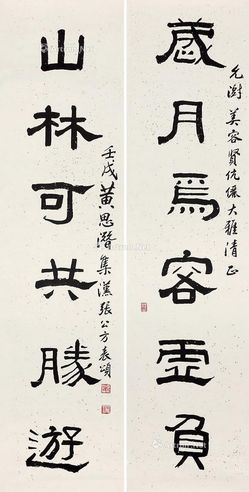 允澍 美容賢伉儷大雅清正
歲月焉容虛負
山林可共勝遊
壬戌黃思潛集漢張公方表頌